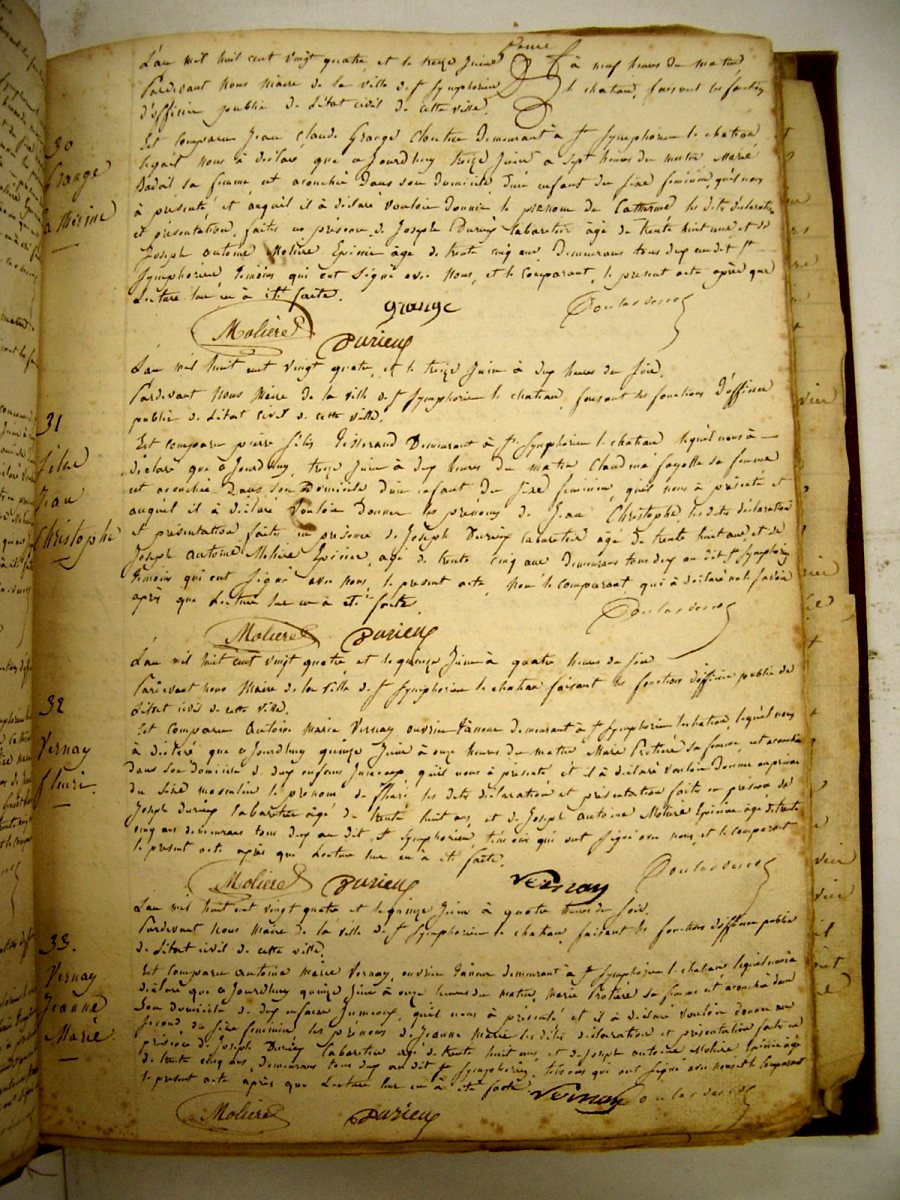 L'an mil huit cent vingt quatre et le treize Juin à neuf heures du matin
Pardevant Nous Maire de la ville de St Symphorien le chateau, faisant les fonctions
d'officier public de L'état civil de cette ville.
30
Grange
Catherine
Est comparu Jean Claude Grange Cloutier Demeurant à St Symphorien le chateau
lequel nous à déclaré que aJourdhuy treize Juin a sept heures du matin Marie
sa femme est acouchée dans son domicile d'un enfant du sexe feminin, qu'il nous
à présenté, et auquel il à déclaré vouloir donner le prenom de Catherine les dits déclaration
et présentation, faits en présence de Joseph Durieu Cabaretier âgé de trente huit ans et de
Joseph antoine Moliere Epicier âgé de trente cinq ans, Demeurans tous deux au dit St
Symphorien temoins qui ont signé avec Nous, et le Comparant, le present acte après que
Lecture leur en à été faite.
Grange
Moliere
Durieu
L'an mil huit cent vingt quatre, et le treize Juin à deux heures du soir.
Pardevant Nous Maire de la ville de St Symphorien le chateau, faisant les fonctions d'officier
public de L'état civil de cette ville.
31
Jean
Christophe
Est comparu pierre tisserand Demeurant à St Symphorien le chateau lequel nous à
déclaré que aJourdhuy, treize Juin à deux heures du matin Claudine fayolle sa femme
est acouchée Dans son Domicile d'un enfant du sexe feminin qu'il nous à présenté et
auquel il à déclaré Vouloir Donner les prenoms de Jean Christophe les dits déclaration
et présentation faits en présence de Joseph Durieu cabaretier âgé de trente huit ans, et de
Joseph antoine Moliere Epicier, agé de trente cinq ans demeurans tous deux au dit St Symphorien
temoins qui ont signé avec nous, le present acte, Non le comparant qui à déclaré ne le savoir
après que Lecture leur en à été faite.
Moliere
Durieu
L'an mil huit cent vingt quatre et le quinze Juin à quatre heures du soir
Pardevant nous Maire de la ville de St Symphorien le chateau faisant les fonctions d'officier public de
L'état civil de cette ville.
32
Vernay
fleuri.
Est Comparu Antoine Marie Vernay ouvrier taneur demeurant à St Symphorien le chateau lequel nous
à déclaré que aJourdhuy quinze Juin à onze heures du matin Marie sa femme, est acouchée
dans son domicile de deux enfans Jumeaux, qu'il nous à présenté, et il à déclaré vouloir Donner au premier
du sexe masculin le prenom de fleuri, les dits déclaration et présentation faits en présence de
Joseph Durieu Cabaretier âgé de trente huit ans, et de Joseph antoine Moliere Epicier âgé de trente
cinq ans demeurans tous deux au dit St Symphorien, témoins qui ont signé avec nous, et le comparant
le present acte après que Lecture leur en à été faite.
Moliere
Durieu
Vernay
L'an mil huit cent vingt quatre et le quinze Juin à quatre heures du soir.
Pardevant Nous Maire de la ville de St Symphorien le chateau, faisant les fonctions d'officier public
de L'état civil de cette ville.
33.
Vernay
Jeanne
Marie
Est Comparu antoine Marie Vernay, ouvrier taneur demeurant à St Symphorien le chateau lequel nous à
déclaré que aJourdhuy quinze Juin à onze heures du matin, Marie sa femme est acouchée dans
son domicile de deux enfans Jumeaux, qu'il nous à présenté et il à déclaré vouloir donner au
second, du sexe feminin les prenoms de Jeanne Marie les dites déclaration et présentation faites en
présence de Joseph Durieu Cabaretier agé de trente huit ans, et de Joseph antoine Moliere Epicier agé
de trente cinq ans, demeurans tous deux au dit St Symphorien, témoins qui ont signé avec nous, et le comparant
le present acte après que Lecture leur en à été faite.
Vernay
Moliere
Durieu